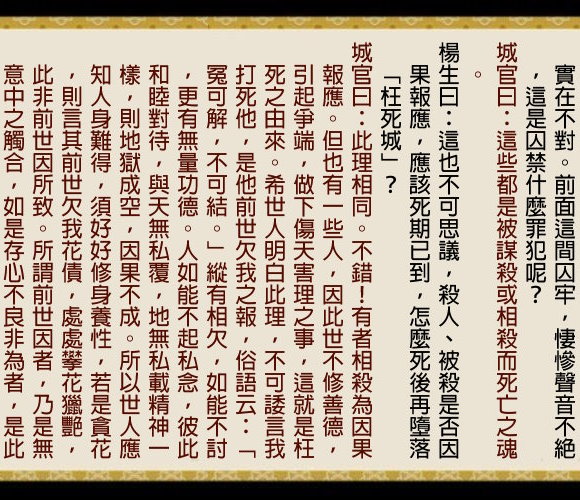 實在不對。前面這間囚牢，悽慘聲音不絕
，這是囚禁什麼罪犯呢？
城官曰：這些都是被謀殺或相殺而死亡之魂
。
楊生曰：這也不可思議，殺人、被殺是否因
果報應，應該死期已到，怎麼死後再墮落
「枉死城」？
城官曰：此理相同。不錯！有者相殺為因果
報應。但也有一些人，因此世不修善德，
引起爭端，做下傷天害理之事，這就是枉
死之由來。希世人明白此理，不可諉言我
打死他，是他前世欠我之報，俗語云：「
冤可解，不可結。」縱有相欠，如能不討
，更有無量功德。人如能不起私念，彼此
和睦對待，與天無私覆，地無私載精神一
樣，則地獄成空，因果不成。所以世人應
知人身難得，須好好修身養性，若是貪花
，則言其前世欠我花債，處處攀花獵艷，
此非前世因所致。所謂前世因者，乃是無
意中之觸合，如是存心不良非為者，是此